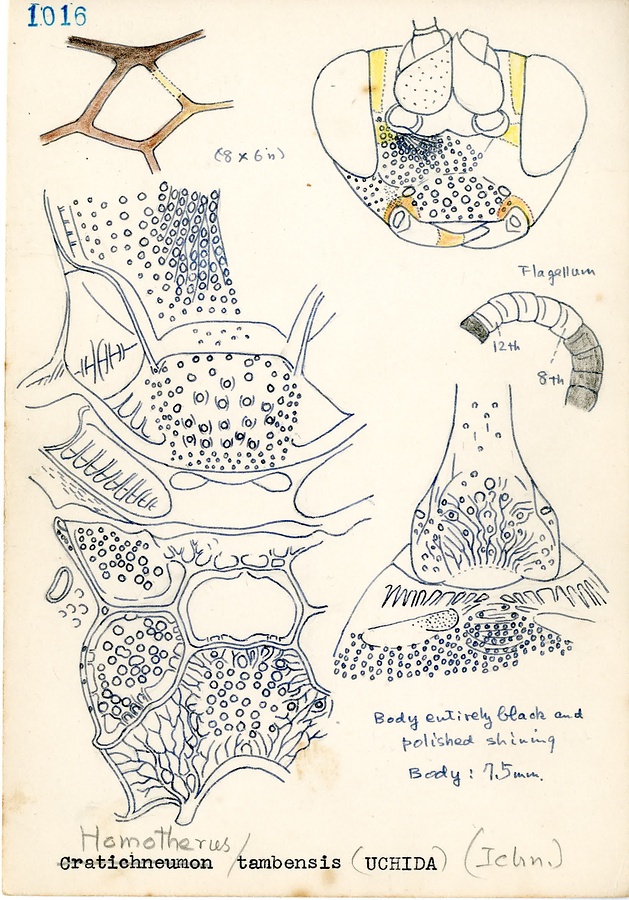 1016
(8 x 6 in)
Flagellum
12th
8-th
Body entirely black and
polished shining
Body : 7.5 mm.
Homotherus
Cratichneumon / tambensis (UCHIDA) (Ichn.)